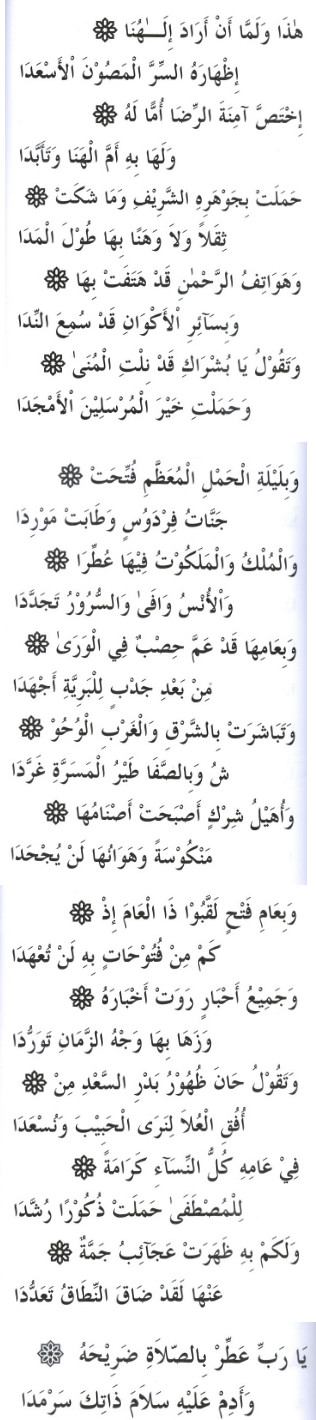 هٰذَا وَلَمَّا أَنْ أَرَادَ إِلَـــٰهُنَا ۞
إِظْهَارَهُ السِّرَّ الْمَصُوْنَ الْأَسْعَدَا
إِخْتَصَّ آمِنَةَ الرِّضَا أُمًّا لَهُ ۞
وَلَهَا بِهِ أَمَّ الْهَنَا وَتَأَبَّدَا
حَمَلَتْ بِجَوْهَرِهِ الشَّرِيْفِ وَمَا شَكَتْ ۞
ثِقَلاً وَلاَ وَهَنًا بِهَا طُوْلَ الْمَدَا
وَهَوَاتِفُ الرَّحْمٰنِ قَدْ هَتَفَتْ بِهَا ۞
وَبِسَآئِرِ الْأَكْوَانِ قَدْ سُمِعَ النِّدَا
وَتَقُوْلُ يَا بُشْرَاكِ قَدْ نِلْتِ الْمُنَىٰ ۞
وَحَمَلْتِ خَيْرَ الْمُرْسَلِيْنَ الْأَمْجَدَا
وَبِلَيْلَةِ الْحَمْلِ الْمُعَظَّمِ فُتِّحَتْ ۞
جَنَّاتُ فِرْدَوْسٍ وَطَابَتْ مَوْرِدَا
وَالْمُلْكُ وَالْمَلَكُوْتُ فِيْهَا عُطِّرَا ۞
وَالْأُنْسُ وَافَىٰ وَالسُّرُوْرُ تَجَدَّدَا
وَبِعَامِهَا قَدْ عَمَّ خِصْبٌ فِي الْوَرَىٰ ۞
مِنْ بَعْدِ جَدْبٍ لِلْبَرِيَّةِ أَجْهَدَا
وَتَبَاشَرَتْ بِالشَّرْقِ وَالْغَرْبِ الْوُحُوْ ۞
شُ وَبِالصَّفَا طَيْرُ الْمَسَرَّةِ غَرَّدَا
وَأُهَيْلُ شِرْكٍ أَصْبَحَتْ أَصْنَامُهَا ۞
مَنْكُوْسَةً وَهَوَانُهَا لَنْ يُجْحَدَا
وَبِعَامِ فَتْحٍ لَقَّبُوْا ذَا الْعَامَ إِذْ ۞
كَمْ مِنْ فُتُوْحَاتٍ بِهِ لَنْ تُعْهَدَا
وَجَمِيْعُ أَحْبَارٍ رَوَتْ أَخْبَارَهُ ۞
وَزَهَا بِهَا وَجْهُ الزَّمَانِ تَوَرُّدَا
وَتَقُوْلُ حَانَ ظُهُوْرُ بَدْرِ السَّعْدِ مِنْ ۞
أُفُقِ الْعُلاَ لِنَرَى الْحَبِيْبَ وَنُسْعَدَا
فِيْ عَامِهِ كُلُّ النِّسَآءِ كَرَامَةً ۞
لِلْمُصْطَفَىٰ حَمَلَتْ ذُكُوْرًا رُشَّدَا
وَلَكَمْ بِهِ ظَهَرَتْ عَجَآئِبُ جَمَّةٌ ۞
عَنْهَا لَقَدْ ضَاقَ النِّطَاقُ تَعَدُّدَا
يَا رَبِّ عَطِّرْ بِالصَّلاَةِ ضَرِيْحَهُ ۞
وَأَدِمْ عَلَيْهِ سَلاَمَ ذَاتِكَ سَرْمَدَا